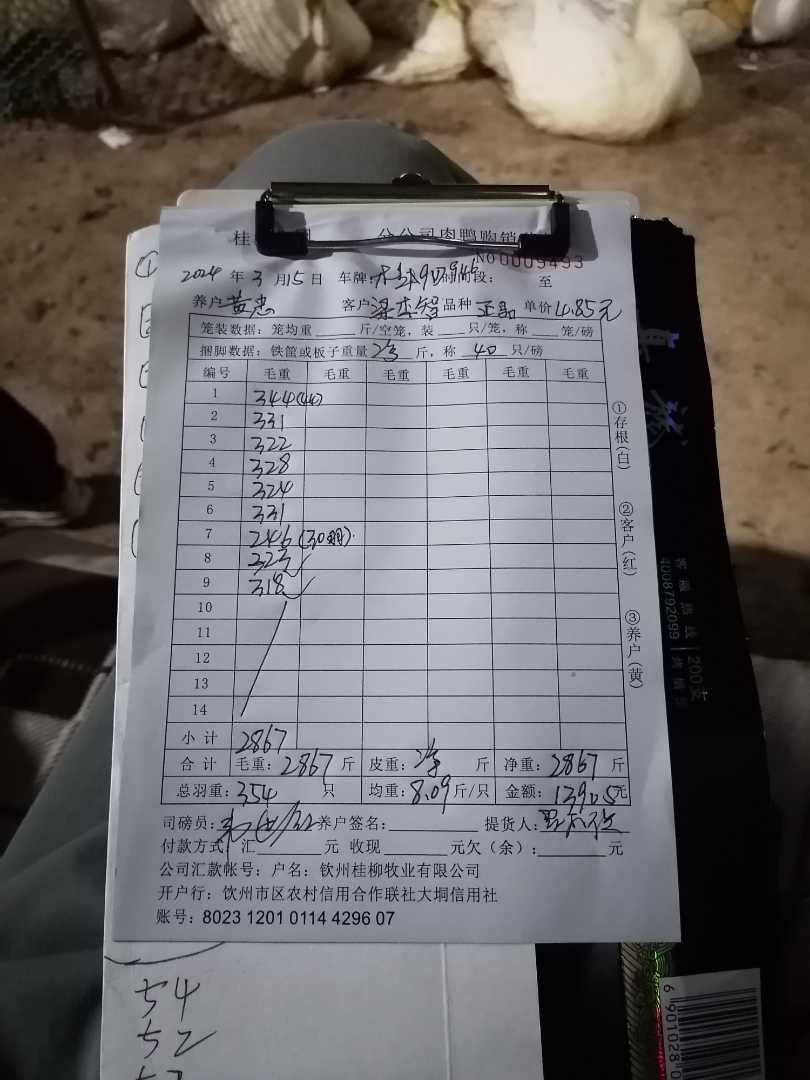 分公司肉鸭购销
NO 0009493
2024 年 3 月 15 日 车牌: 段: 至
养户 黄忠 客户 梁杰智 品种 单价 4.85元
笼装数据: 笼均重 斤/空笼, 装 只/笼, 称 笼/磅
捆脚数据: 铁筐或板子重量 斤, 称 40 只/磅
编号 毛重 毛重 毛重 毛重 毛重 毛重
1 344(44)
2 331
3 322
4 328
5 324
6 331
7 246 (30
8 323
9 318
10
11
12
13
14
小计 2867
合计 毛重: 2867 斤 皮重: 斤 净重: 2867 斤
总羽重: 354 只 均重: 8.09 斤/只 金额: 13905元
司磅员: 养户签名: 提货人:
付款方式: 汇 元 收现 元欠(余): 元
公司汇款帐号: 户名: 钦州桂柳牧业有限公司
开户行: 饮州市区农村信用合作联社大垌信用社
账号: 8023 1201 0114 4296 07
①存根(白)
②客户(红)
③养户(黄)
4008792099
200支
54
52
6 901028